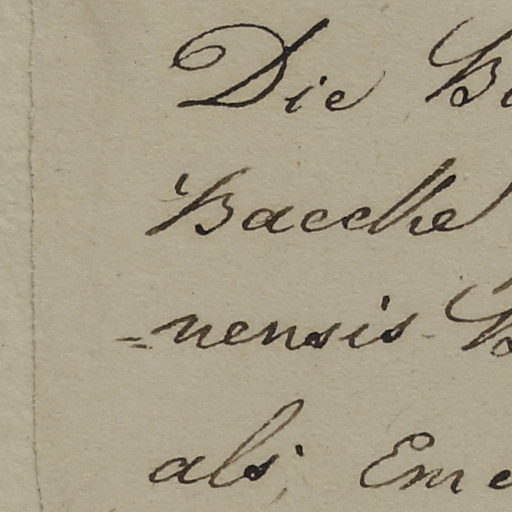 Die B
Bacche
=nensis B
als, Em